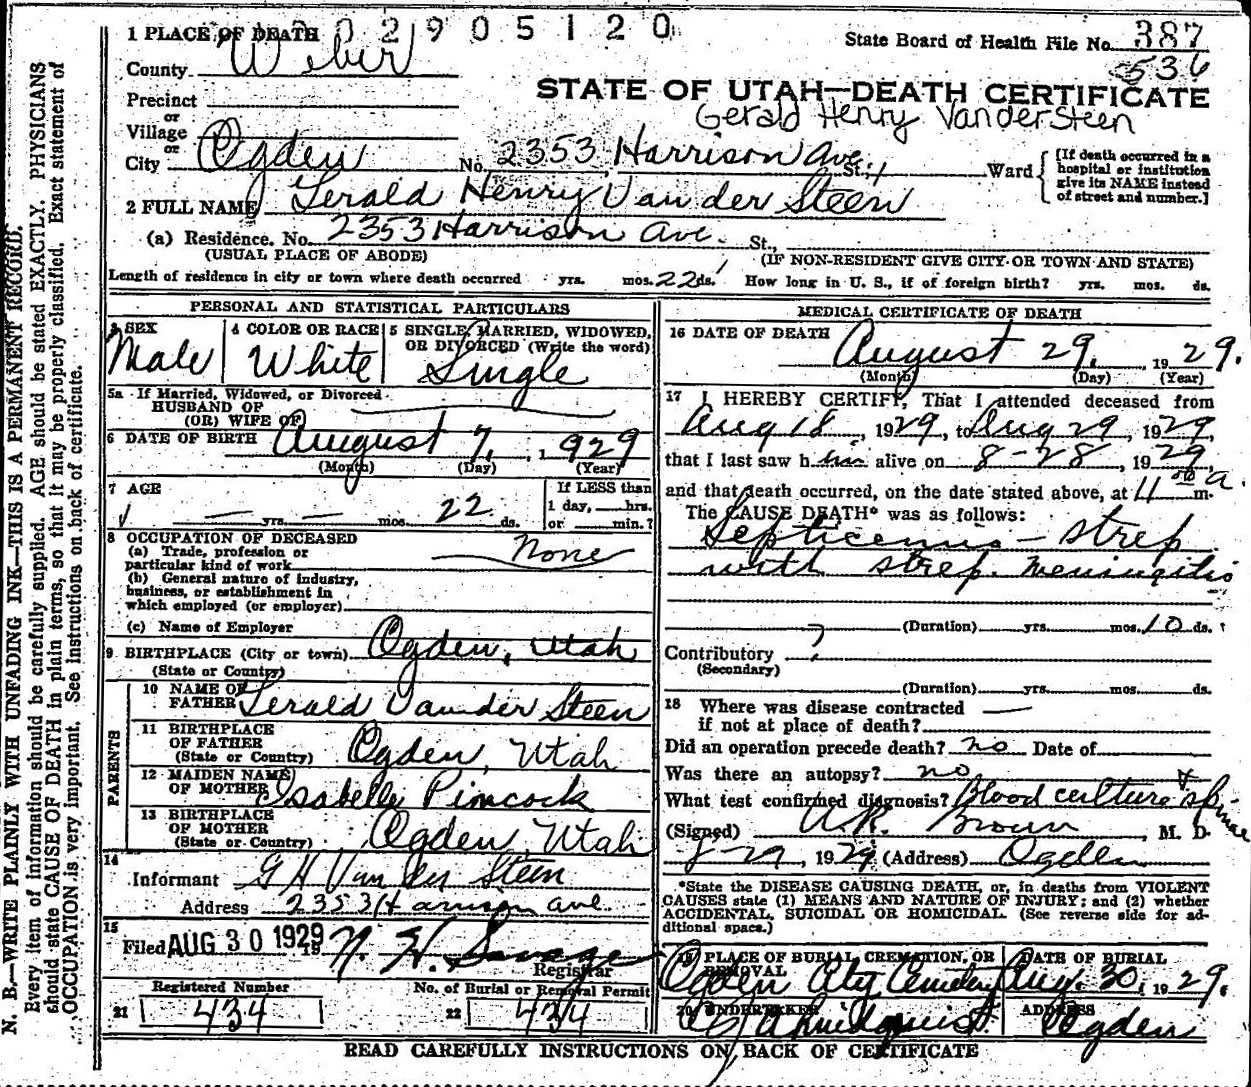 02905120
1 PLACE OF DEATH
State Board of Health File No. 387
536
County Weber
STATE OF UTAH—DEATH CERTIFICATE
Precinct
or
Gerald Henry VanderSteen
Village
or
City Ogden No. 2353 Harrison Ave. St.; Ward
[If death occurred in a hospital or institution give its NAME instead of street and number.]
2 FULL NAME Gerald Henry Van der Steen
(a) Residence. No. 2353 Harrison Ave. St.,
(USUAL PLACE OF ABODE) (IF NON-RESIDENT GIVE CITY OR TOWN AND STATE)
Length of residence in city or town where death occurred yrs. mos. 22 ds. How long in U. S., if of foreign birth? yrs. mos. ds.
PERSONAL AND STATISTICAL PARTICULARS
3 SEX
Male
4 COLOR OR RACE
White
5 SINGLE, MARRIED, WIDOWED,
OR DIVORCED (Write the word)
Single
5a If Married, Widowed, or Divorced
HUSBAND OF
(OR) WIFE OF
6 DATE OF BIRTH August 7, 1929
(Month) (Day) (Year)
7 AGE
— yrs. — mos. 22 ds.
If LESS than
1 day, hrs.
or min.?
8 OCCUPATION OF DECEASED
(a) Trade, profession or
particular kind of work None
(b) General nature of industry,
business, or establishment in
which employed (or employer)
(c) Name of Employer
9 BIRTHPLACE (City or town) Ogden, Utah
(State or Country)
PARENTS
10 NAME OF
FATHER Gerald Van der Steen
11 BIRTHPLACE
OF FATHER
(State or Country) Ogden, Utah
12 MAIDEN NAME
OF MOTHER Isabelle Pincock
13 BIRTHPLACE
OF MOTHER
(State or Country) Ogden, Utah
14
Informant G H Van der Steen
Address 2353 Harrison ave.
15
Filed AUG 30 1929 19 N. H. Savage
Registrar
Registered Number
21 434
No. of Burial or Removal Permit
22 434
MEDICAL CERTIFICATE OF DEATH
16 DATE OF DEATH
August 29, 1929.
(Month) (Day) (Year)
17 I HEREBY CERTIFY, That I attended deceased from
Aug 18, 1929, to Aug 29, 1929,
that I last saw him alive on 8-28, 1929,
and that death occurred, on the date stated above, at 11 00 a. m.
The CAUSE DEATH* was as follows:
Septicemia - strep
with strep. meningitis
(Duration) yrs. mos. 10 ds.
Contributory ?
(Secondary)
(Duration) yrs. mos. ds.
18 Where was disease contracted
if not at place of death? —
Did an operation precede death? no Date of
Was there an autopsy? no
What test confirmed diagnosis? Blood culture & spinal
(Signed) A.R. Brown M. D.
8-29, 1929 (Address) Ogden
*State the DISEASE CAUSING DEATH, or, in deaths from VIOLENT
CAUSES state (1) MEANS AND NATURE OF INJURY; and (2) whether
ACCIDENTAL, SUICIDAL OR HOMICIDAL. (See reverse side for ad-
ditional space.)
19 PLACE OF BURIAL, CREMATION, OR
REMOVAL
Ogden City Cemetery
DATE OF BURIAL
Aug. 30, 1929.
20 UNDERTAKER
ADDRESS
Ogden
READ CAREFULLY INSTRUCTIONS ON BACK OF CERTIFICATE
N. B.—WRITE PLAINLY WITH UNFADING INK—THIS IS A PERMANENT RECORD.
Every item of information should be carefully supplied. AGE should be stated EXACTLY. PHYSICIANS
should state CAUSE OF DEATH in plain terms, so that it may be properly classified. Exact statement of
OCCUPATION is very important. See instructions on back of certificate.